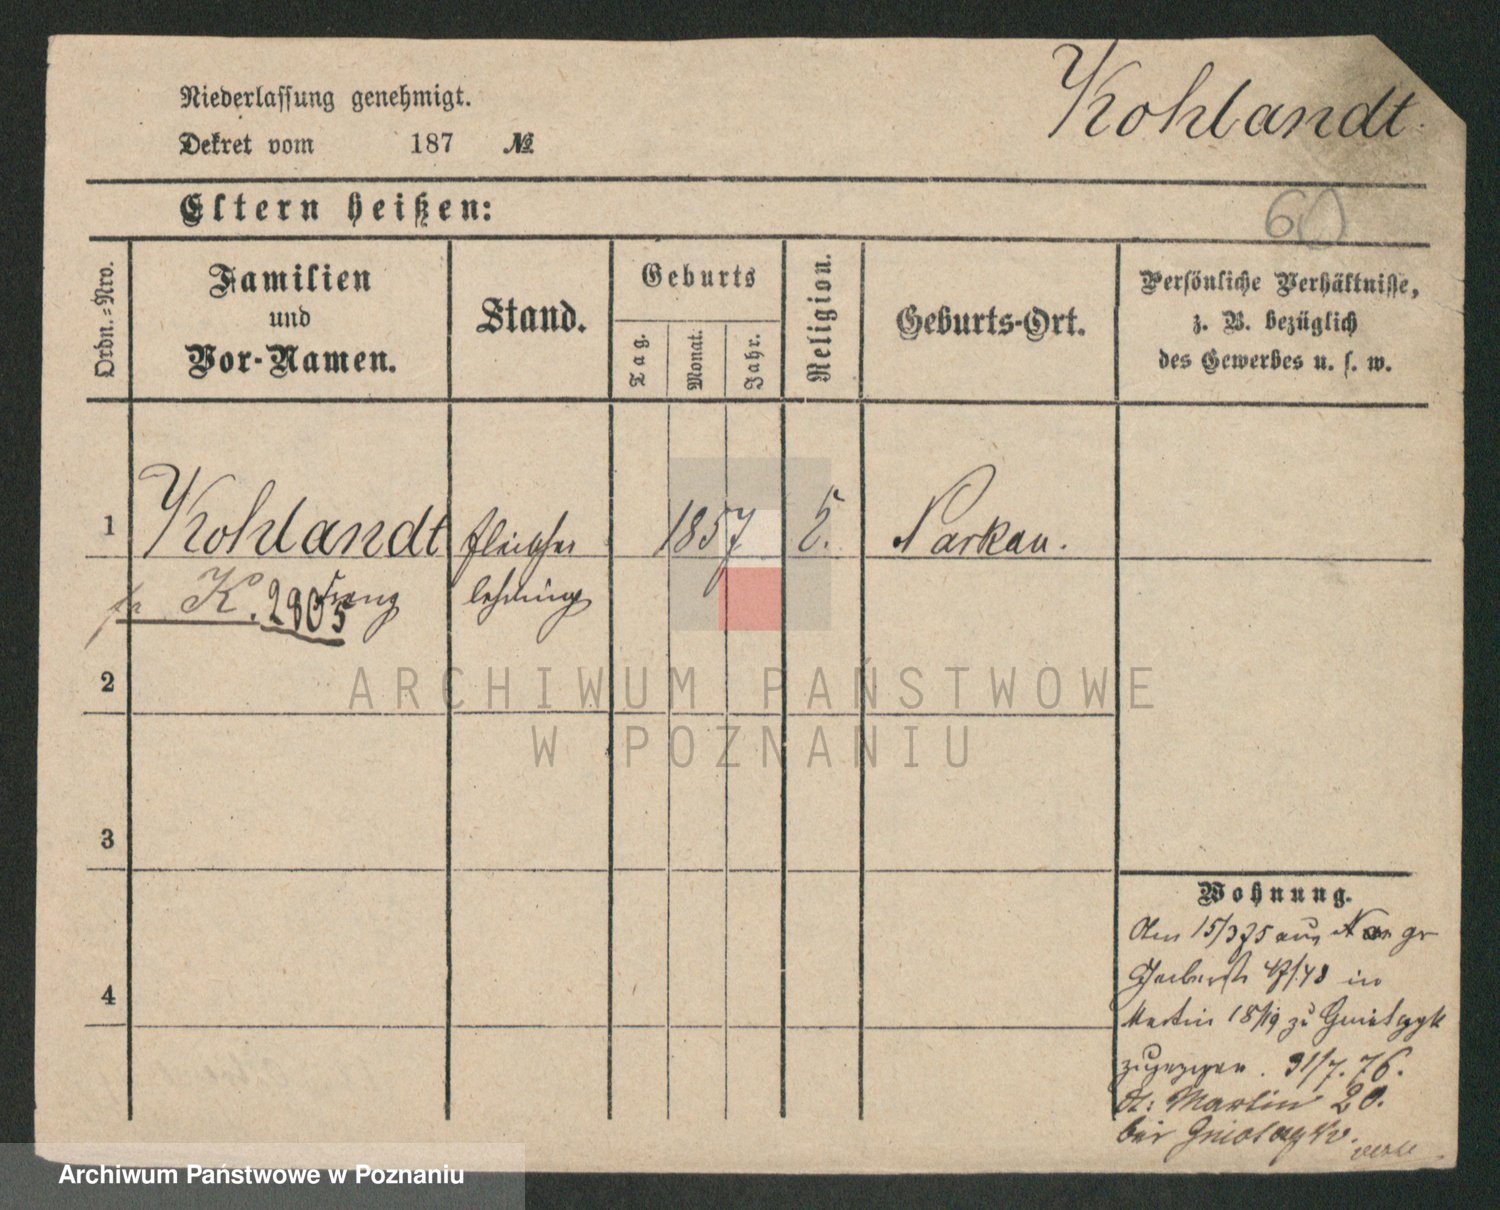 Niederlassung genehmigt.
Kohlandt.
Dekret vom 187 №
Eltern heißen:
60
Ordn.-Nro.
Familien
und
Vor-Namen.
Stand.
Geburts
Tag.
Monat.
Jahr.
Religion.
Geburts-Ort.
Persönliche Verhältnisse,
z. B. bezüglich
des Gewerbes u. s. w.
1
Kohlandt
Franz
fleischer
lehrling
1857
Parkau.
K. 2805
2
3
4
Wohnung.
Am 15/3 75 aus
in
Martin 18/19 zu
zugezogen. 31/7. 76.
St: Martin 20.
bei
ARCHIWUM PAŃSTWOWE
W POZNANIU
Archiwum Państwowe w Poznaniu